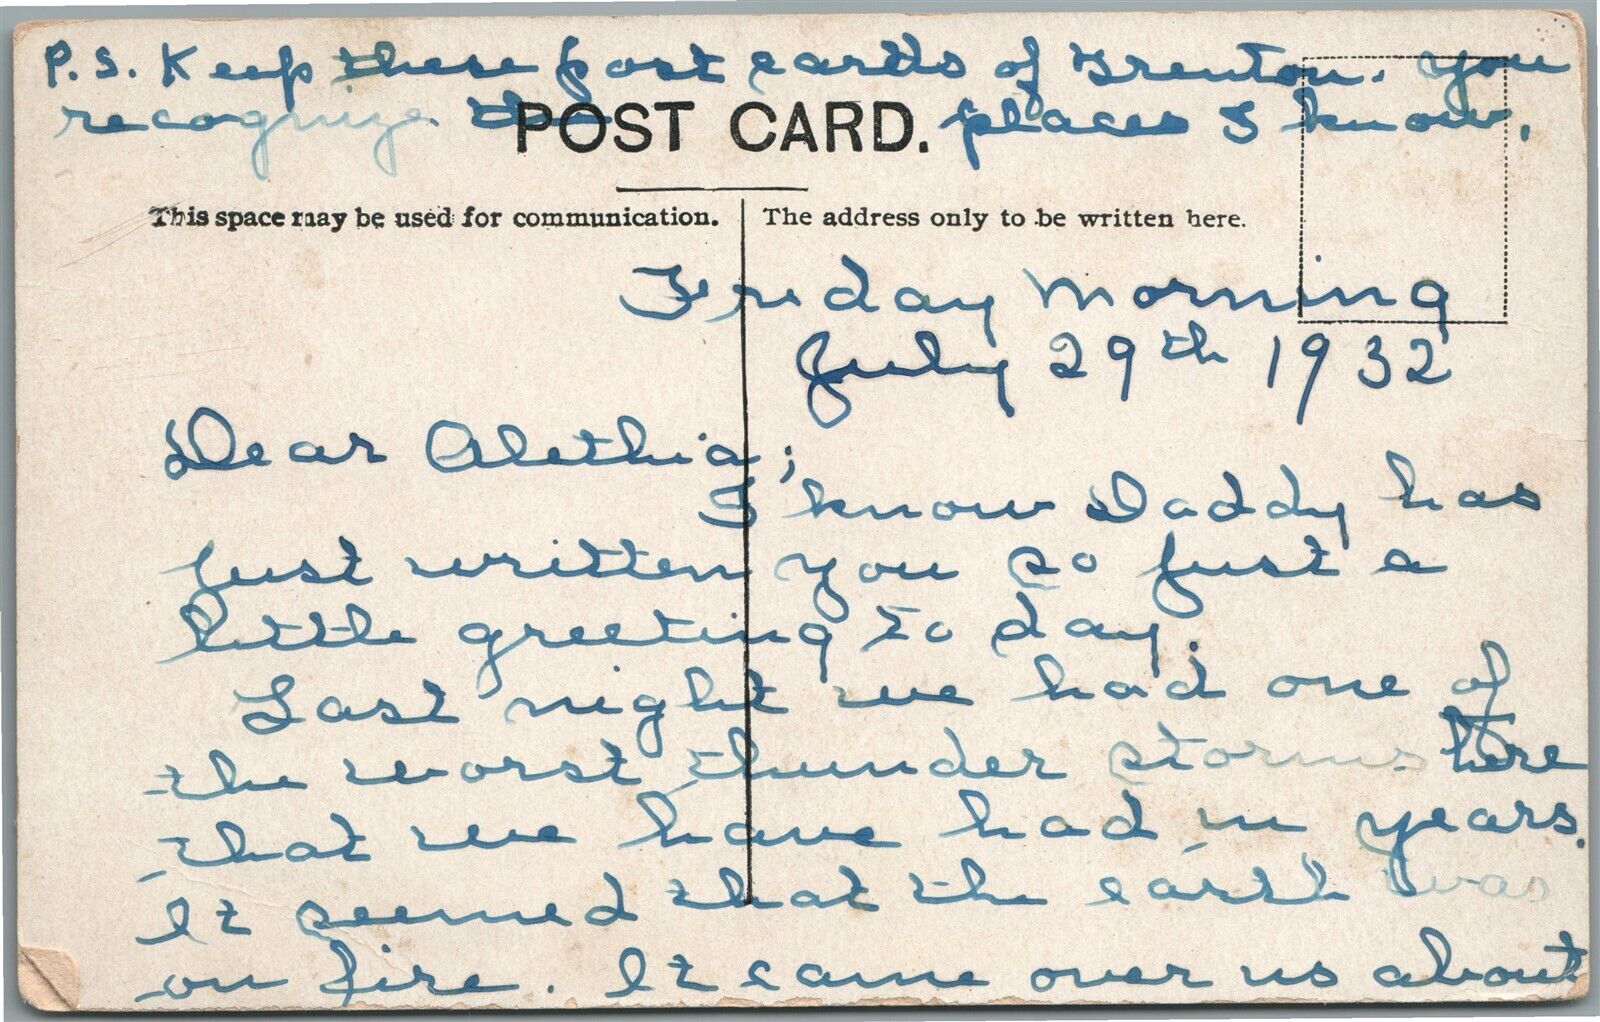 P.S. Keep these post cards of Trenton. You
recognize the places I know.
POST CARD.
This space may be used for communication.
The address only to be written here.
Friday Morning
July 29th 1932
Dear Alethia;
I know Daddy has
just written you so just a
little greeting to day.
Last night we had one of
the worst thunder storms here
that we have had in years.
It seemed that the earth was
on fire. It came over us about